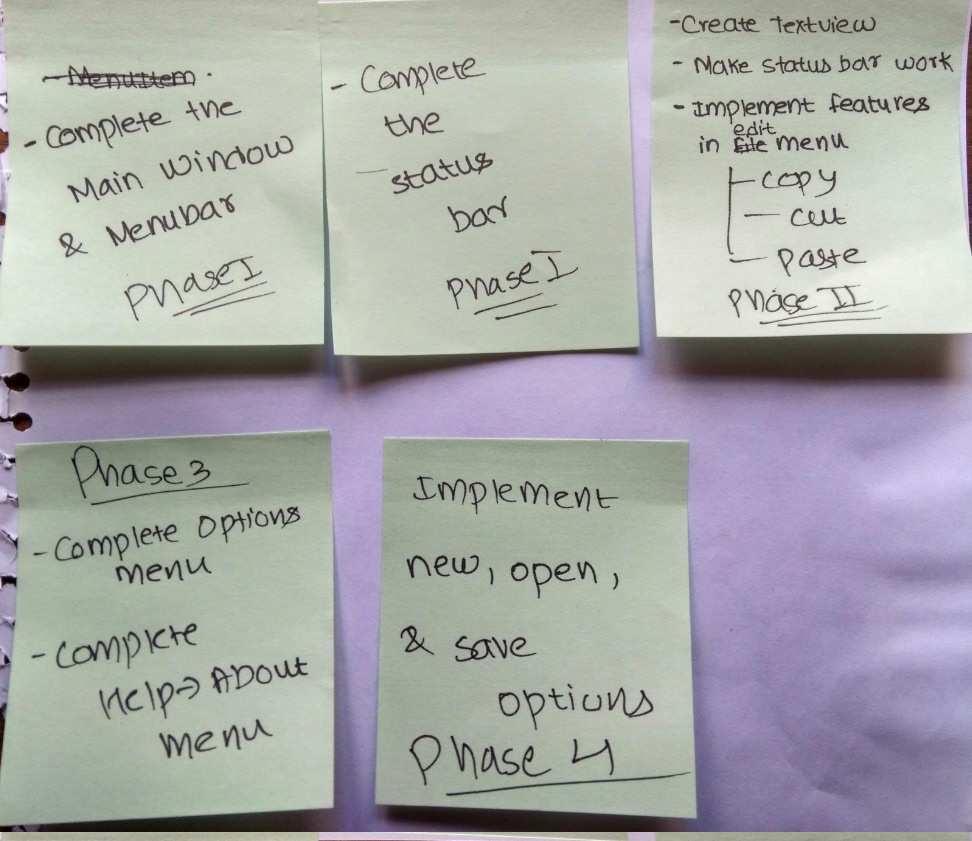 - Menuitem.
- Complete the
Main Window
& Menubar
Phase I
- Complete
the
status
bar
Phase I
- Create Textview
- Make status bar work
- Implement features
edit
in file menu
copy
- cut
- paste
Phase II
Phase 3
- Complete Options
menu
- Complete
Help→About
menu
Implement
new, open,
& save
options
Phase 4